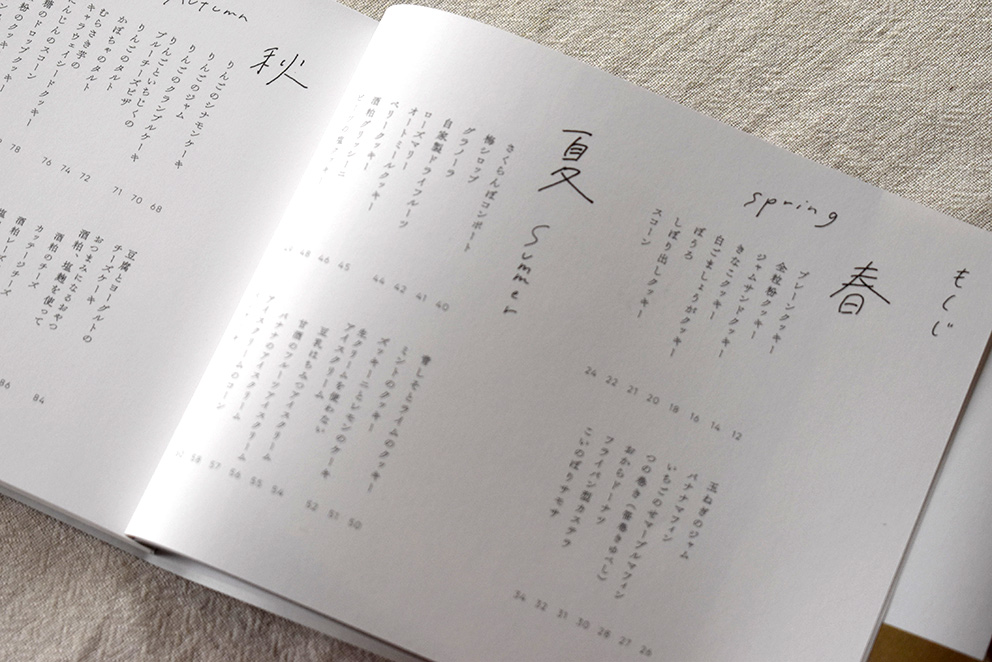 もくじ
春
spring
プレーンクッキー
全粒粉クッキー
ジャムサンドクッキー
きなこクッキー
白ごましょうがクッキー
ぼうろ
しぼり出しクッキー
スコーン
12
14
16
18
20
21
22
24
玉ねぎのジャム
バナナマフィン
いちごのマーブルマフィン
つの巻き（笹巻きゆべし）
おからドーナツ
フライパン型カステラ
こいのぼりサモサ
26
27
28
30
31
32
34
夏
Summer
さくらんぼコンポート
梅シロップ
グラノーラ
自家製ドライフルーツ
ローズマリー
オートミールクッキー
ベリークッキー
酒粕グリッシーニ
40
41
42
44
45
46
48
青じそとライムのクッキー
ミントのクッキー
ズッキーニとレモンのケーキ
生クリームを使わない
アイスクリーム
豆乳はちみつアイスクリーム
甘酒のフルーツアイスクリーム
バナナのアイスクリーム
アイスクリームのコーン
50
51
52
54
55
56
57
58
秋
Autumn
りんごのシナモンケーキ
りんごのジャム
りんごのクランブルケーキ
ブルーチーズといちじくの
りんごのチーズピザ
かぼちゃのタルト
むらさき芋の
キャラウェイシードクッキー
にんじんのスコーン
68
70
71
72
74
76
78
豆腐とヨーグルトの
チーズケーキ
おつまみになるおやつ
酒粕、塩麹を使って
カッテージチーズ
酒粕のチーズ
84
86